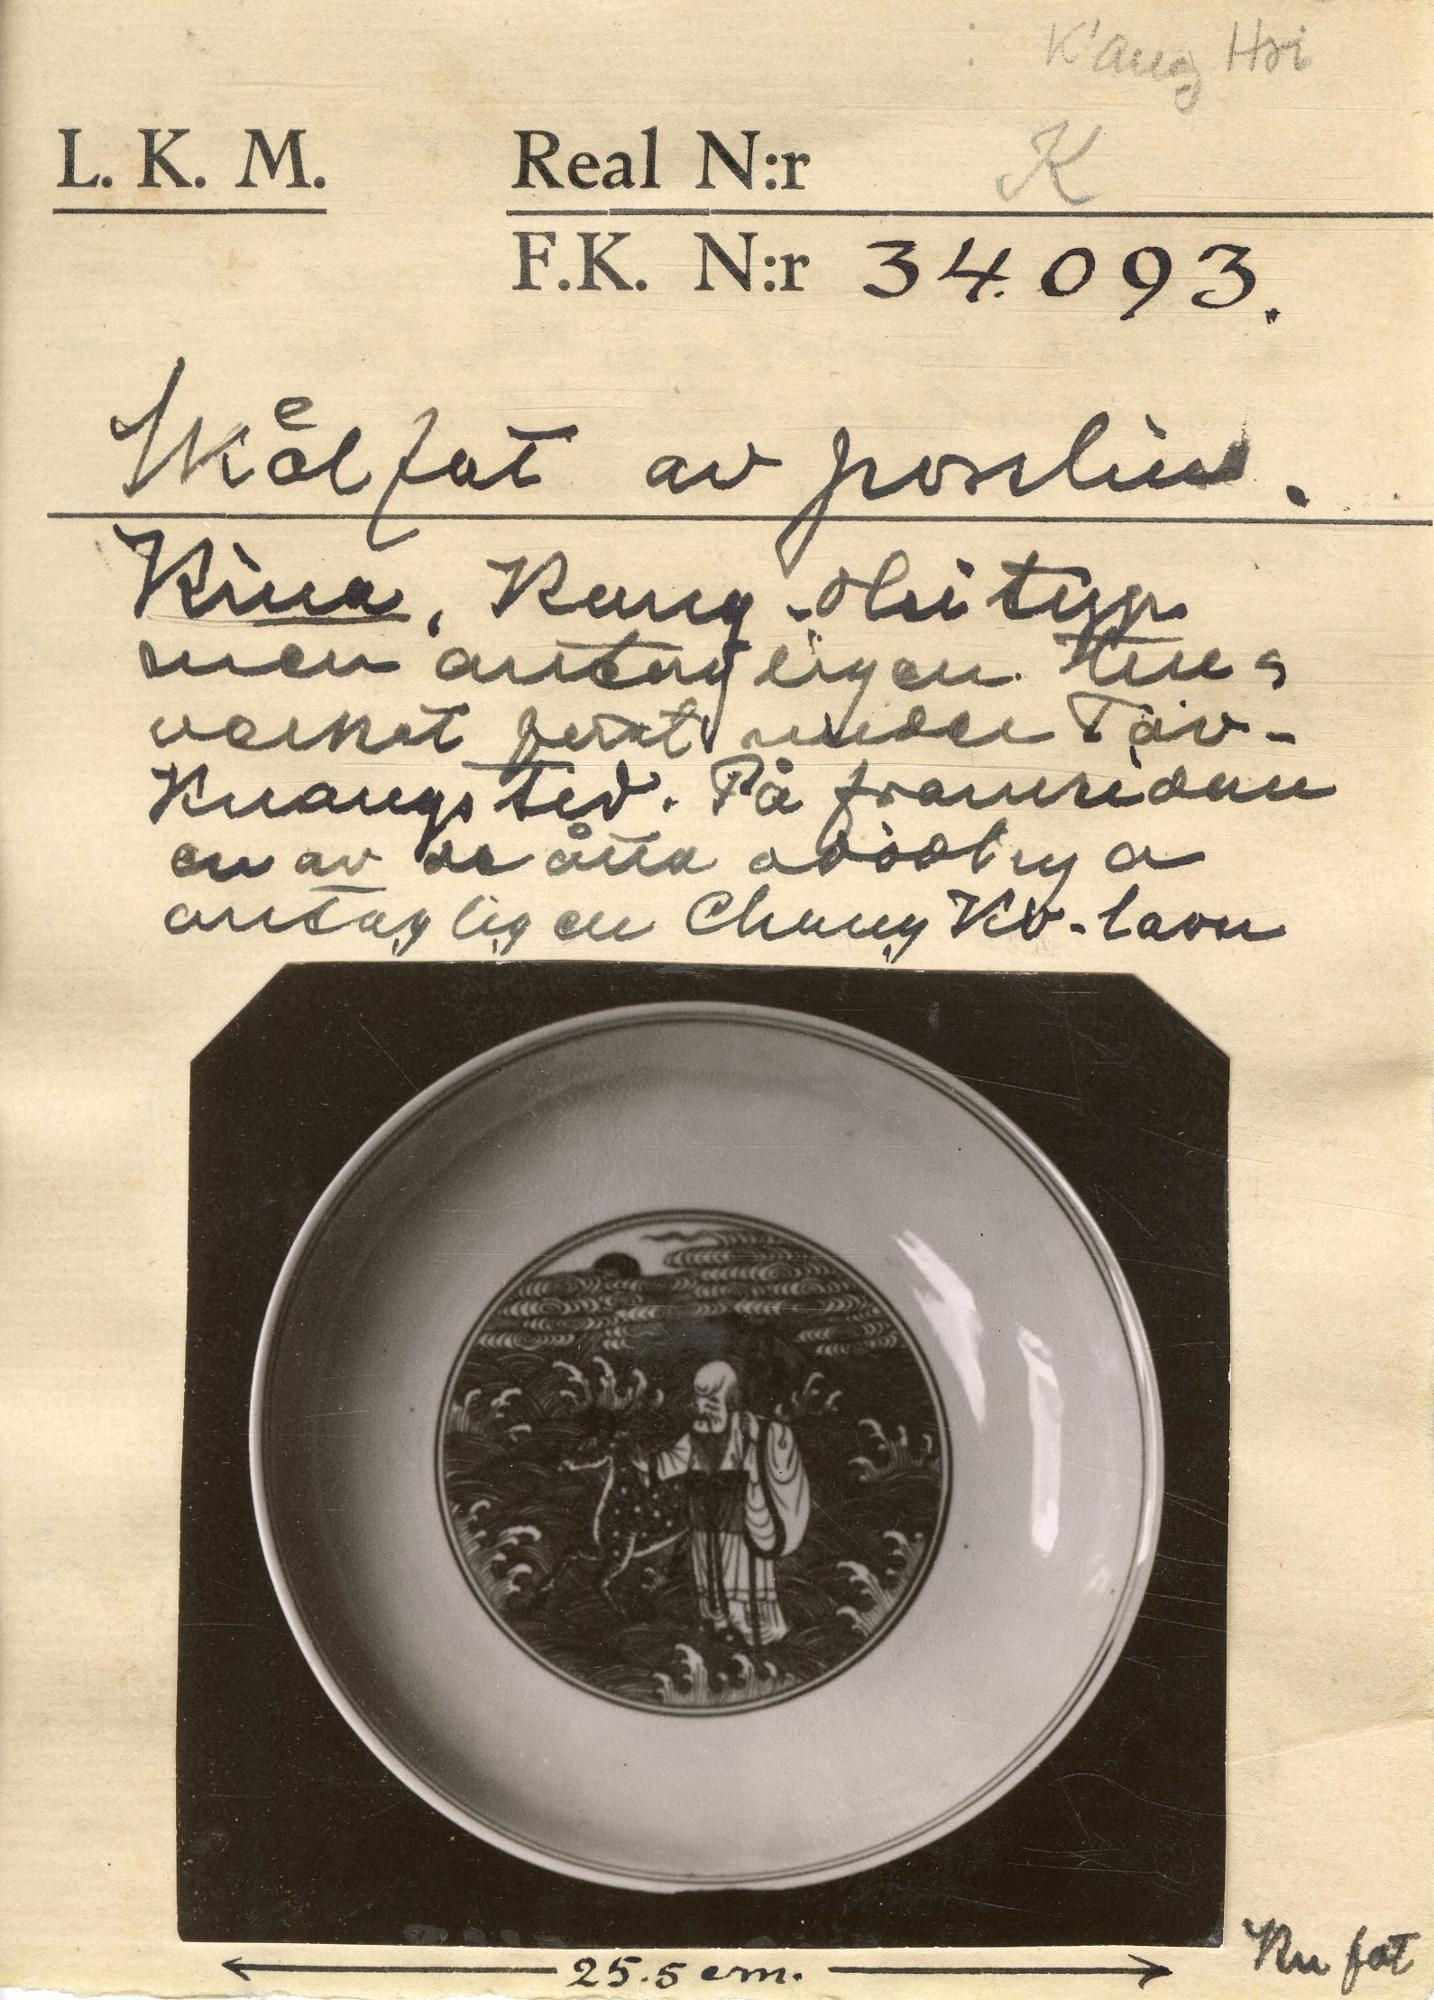 K'ang Hsi
L. K. M. Real N:r K
F.K. N:r 34.093.
Skålfat av porslin.
Kina, Kang-Hsi typ
men antagligen
verket under Tao-
Kuangs tid. På framsidan
en av de åtta odödliga
antagligen Chang Ko-laou
25.5 cm.
fat